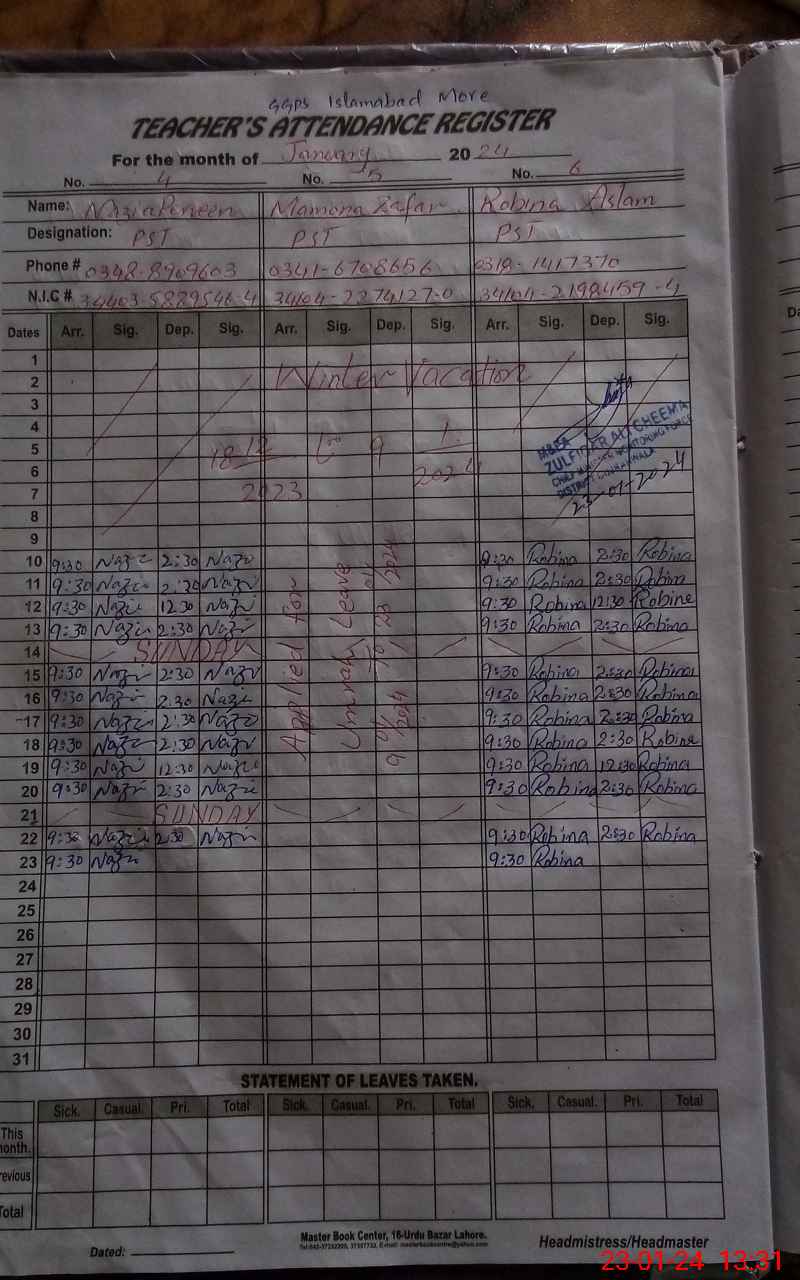 GGPS Islamabad More
TEACHER'S ATTENDANCE REGISTER
For the month of January 2024
No. 4 No. 5 No. 6
Name: Mamona Zafar Robina Aslam
Designation: PST PST PST
Phone # 0348-8909603 0341-6708656 0318-1417370
N.I.C # 34403-5889546-4 34104-2274127-0 34104-2198459-4
Dates Arr. Sig. Dep. Sig. Arr. Sig. Dep. Sig. Arr. Sig. Dep. Sig.
1
2 Winter Vacation
3
4
5 18 12 to 9 1.
6 2024
7 2023
8
9
M&EA
ZULFIQAR ALI CHEEMA
CHIEF MINISTER MONITORING FORCE
DISTRICT GUJRANWALA
23-01-2024
Applied for
Umrah Leave
9/01/2024 To 23/01/2024
10 9:30 Nazi 2:30 Nazi 9:30 Robina 2:30 Robina
11 9:30 Nazi 2:30 Nazi 9:30 Robina 2:30 Robina
12 9:30 Nazi 12:30 Nazi 9:30 Robina 12:30 Robina
13 9:30 Nazi 2:30 Nazi 9:30 Robina 2:30 Robina
14 SUNDAY
15 9:30 Nazi 2:30 Nazi 9:30 Robina 2:30 Robina
16 9:30 Nazi 2:30 Nazi 9:30 Robina 2:30 Robina
17 9:30 Nazi 2:30 Nazi 9:30 Robina 2:30 Robina
18 9:30 Nazi 2:30 Nazi 9:30 Robina 2:30 Robina
19 9:30 Nazi 12:30 Nazi 9:30 Robina 12:30 Robina
20 9:30 Nazi 2:30 Nazi 9:30 Robina 2:30 Robina
21 SUNDAY
22 9:30 Nazi 2:30 Nazi 9:30 Robina 2:30 Robina
23 9:30 Nazi 9:30 Robina
24
25
26
27
28
29
30
31
STATEMENT OF LEAVES TAKEN.
Sick. Casual. Pri. Total Sick. Casual. Pri. Total Sick. Casual. Pri. Total
This
onth.
revious
otal
Master Book Center, 16-Urdu Bazar Lahore.
Dated: Headmistress/Headmaster
23-01-24 13:31